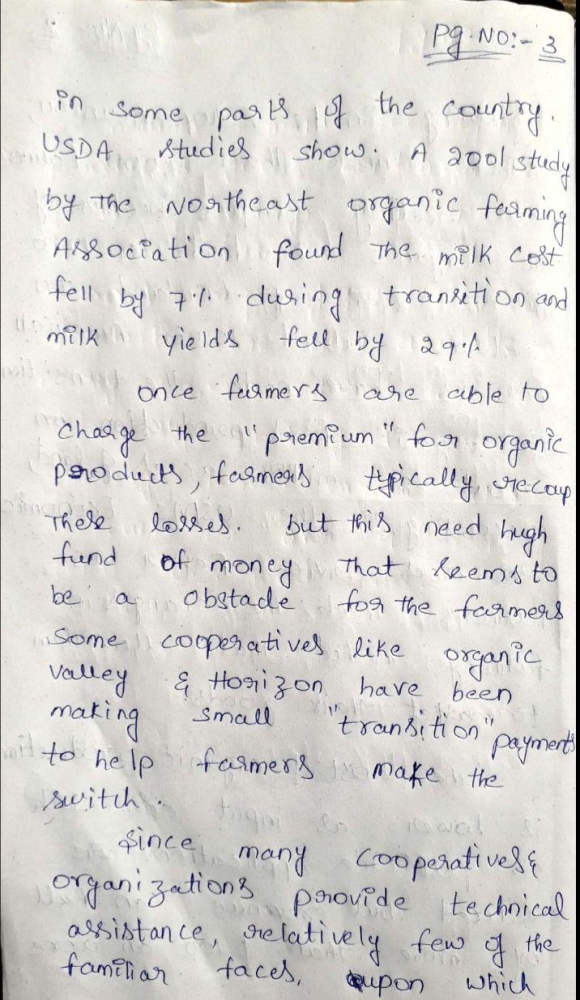 Pg. NO:- 3
in some parts of the country.
USDA studies show. A 2001 study
by the Northeast organic farming
Association found The milk cost
fell by 7% during transition and
milk yields fell by 29%
once farmers are able to
charge the "premium" for organic
products, farmers typically recoup
These losses. but this need hugh
fund of money That seems to
be a obstacle for the farmers
Some cooperatives like organic
valley & Horizon have been
making small "transition" payments
to help farmers make the
switch.
Since many cooperatives &
organizations provide technical
assistance, relatively few of the
familiar faces, upon which